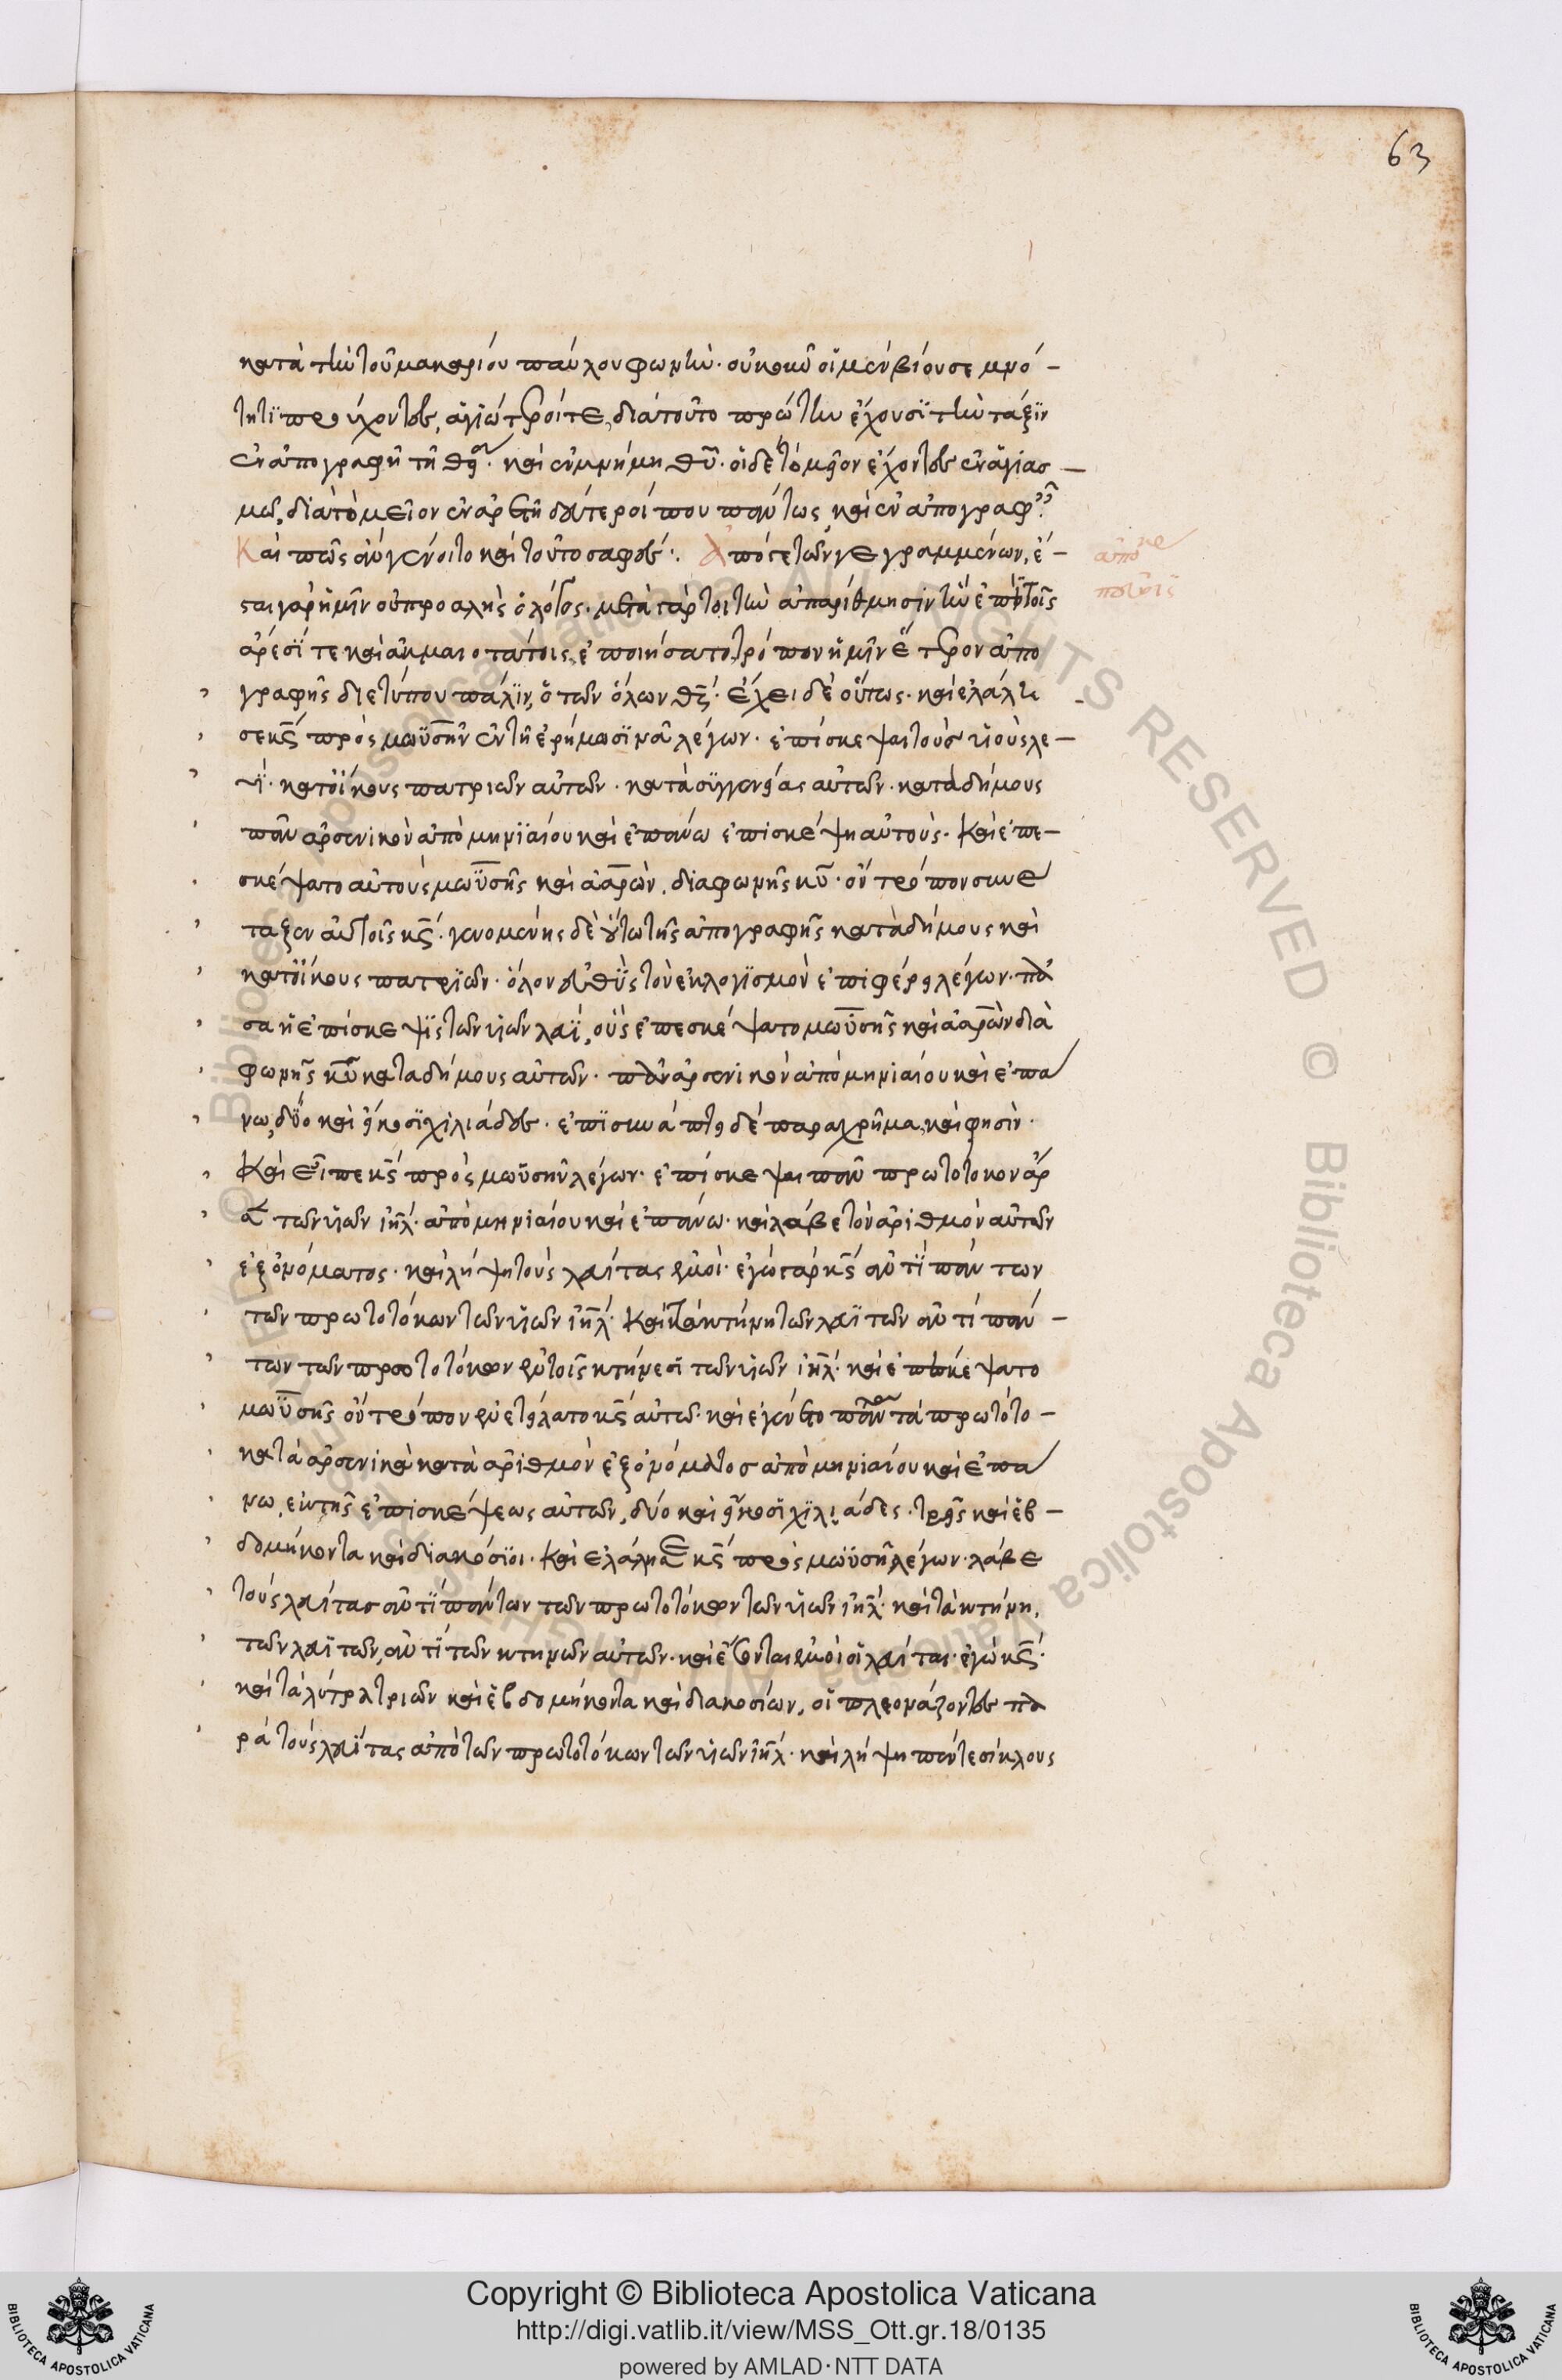 63
κατὰ τὴν τοῦ μακαρίου παύλου φωνὴν· οὐκοῦν οἱ μὲν βίου σεμνό-
τητι προύχοντες, ἁγιώτεροί τε, διατοῦτο πρώτην ἔχουσι τὴν τάξιν
ἐν ἀπογραφῇ τῇ θείᾳ· καὶ ἐν μνήμη θυ· οἱ δὲ τὸ μεῖον ἔχοντες ἐν ἁγιασ-
μῷ, διὰ τὸ μεῖον ἐν ἀρετῇ δεύτεροί που πάντως καὶ ἐν ἀπογραφῇ·
Και πῶς ἂν γένοιτο καὶ τοῦτο σαφές·. Ἀπό γε τῶν γεγραμμένων, ἔ-
σται γὰρ ἡμῖν οὐ προαλὴς ὁ λόγος· μετὰ γάρ τοι τὴν ἀπαρίθμησιν τὴν ἐπί τοῖς
ἄρεσί τε καὶ ἀκμαιοτάτοις, ἐποιήσατο, τρόπον ἡμῖν ἕτερον ἀπο
γραφῆς διετύπου πάλιν, ὁ τῶν ὅλων θς· ἔχει δὲ οὕτως· καὶ ἐλάλη-
σε κς πρὸς μωϋσῆν ἐν τῇ ἐρήμω σινᾶ λέγων· ἐπίσκεψαι τοὺς υἱοὺς λε-
υΐ· κατοίκους πατριῶν αὐτῶν· κατὰ συγγενείας αὐτῶν· κατὰ δήμους
πᾶν ἀρσενικὸν ἀπὸ μηνιαίου καὶ ἐπάνω ἐπισκέψη αὐτούς· Καὶ ἐπε-
σκέψατο αὐτοὺς μωϋσῆς καὶ ἀαρὼν, διαφωνῆς κυ· ὃν τρόπον συνέ
ταξεν αὐτοῖς κς· γενομένης δὲ οὕτω τῆς ἀπογραφῆς κατὰ δήμους καὶ
κατοίκους πατριῶν· ὅλον εὐθὺς τὸν ἐκλογισμὸν ἐπιφέρει λέγων· πᾶ
σα ἡ ἐπίσκεψις τῶν υἱῶν λευΐ, οὓς ἐπεσκέψατο μωϋσῆς καὶ ἀαρὼν διὰ
φωνῆς κυ κατα δήμους αὐτῶν· πᾶν ἀρσενικὸν ἀπὸ μηνιαίου καὶ ἐπά
νω, δύο καὶ εἴκοσι χιλιάδες· ἐπισυνάπτει δὲ παραχρῆμα, καὶ φησὶν·
Καὶ εἶπε κς πρὸς μωϋσῆν λέγων· ἐπίσκεψαι πᾶν πρωτότοκον ἄρ
σεν τῶν υἱῶν ιηλ· ἀπὸ μηνιαίου καὶ ἐπάνω· καὶ λάβε τὸν ἀριθμὸν αὐτῶν
ἐξ ὀνόματος· καὶ λήψη τοὺς λευίτας ἐμοὶ· ἐγὼ γὰρ κς ἀντὶ πάντων
τῶν πρωτοτόκων τῶν υἱῶν ιηλ· Καὶ τὰ κτήνη τῶν λευϊτῶν ἀντὶ πάν-
των τῶν πρωτοτόκων ἐν τοῖς κτήνεσι τῶν υἱῶν ιηλ· καὶ ἐπεσκέψατο
μωϋσῆς ὃν τρόπον ἐνετείλατο κς αὐτῶ· καὶ ἐγένετο πάντα τὰ πρωτότο-
κα τὰ ἀρσενικὰ κατὰ ἀριθμὸν ἐξ ὀνόματος ἀπὸ μηνιαίου καὶ ἐπά
νω, ἐκ τῆς ἐπισκέψεως αὐτῶν, δύο καὶ εἴκοσι χιλιάδες· τρεῖς καὶ ἑβ-
δομήκοντα καὶ διακόσιοι· Καὶ ἐλάλησε κς πρὸς μωϋσῆν λέγων· λάβε
τοὺς λευίτας ἀντὶ πάντων τῶν πρωτοτόκων τῶν υἱῶν ιηλ· καὶ τὰ κτήνη,
τῶν λευϊτῶν, ἀντὶ τῶν κτηνῶν αὐτῶν· καὶ ἔσονται ἐμοὶ οἱ λευίται· ἐγὼ κς·
καὶ τὰ λύτρα τριῶν καὶ ἑβδομήκοντα καὶ διακοσίων, οἱ πλεονάζοντες πα
ρὰ τοὺς λευίτας ἀπὸ τῶν πρωτοτόκων τῶν υἱῶν ιηλ· καὶ λήψη πέντε σίκλους
Copyright © Biblioteca Apostolica Vaticana
http://digi.vatlib.it/view/MSS_Ott.gr.18/0135
powered by AMLAD·NTT DATA
BIBLIOTECA APOSTOLICA VATICANA
BIBLIOTECA APOSTOLICA VATICANA